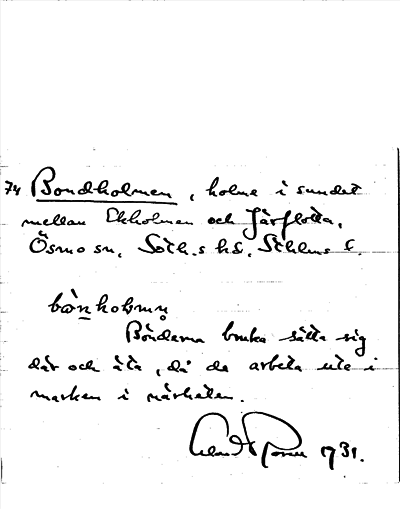 74 Bondholmen, holme i sundet
mellan Ekholmen och Järflotta,
Ösmo sn, Söth.s hd, Sthlms l.
bònholmn
Bönderna bruka sätta sig
där och äta, då de arbeta ute i
marken i närheten.
1931.